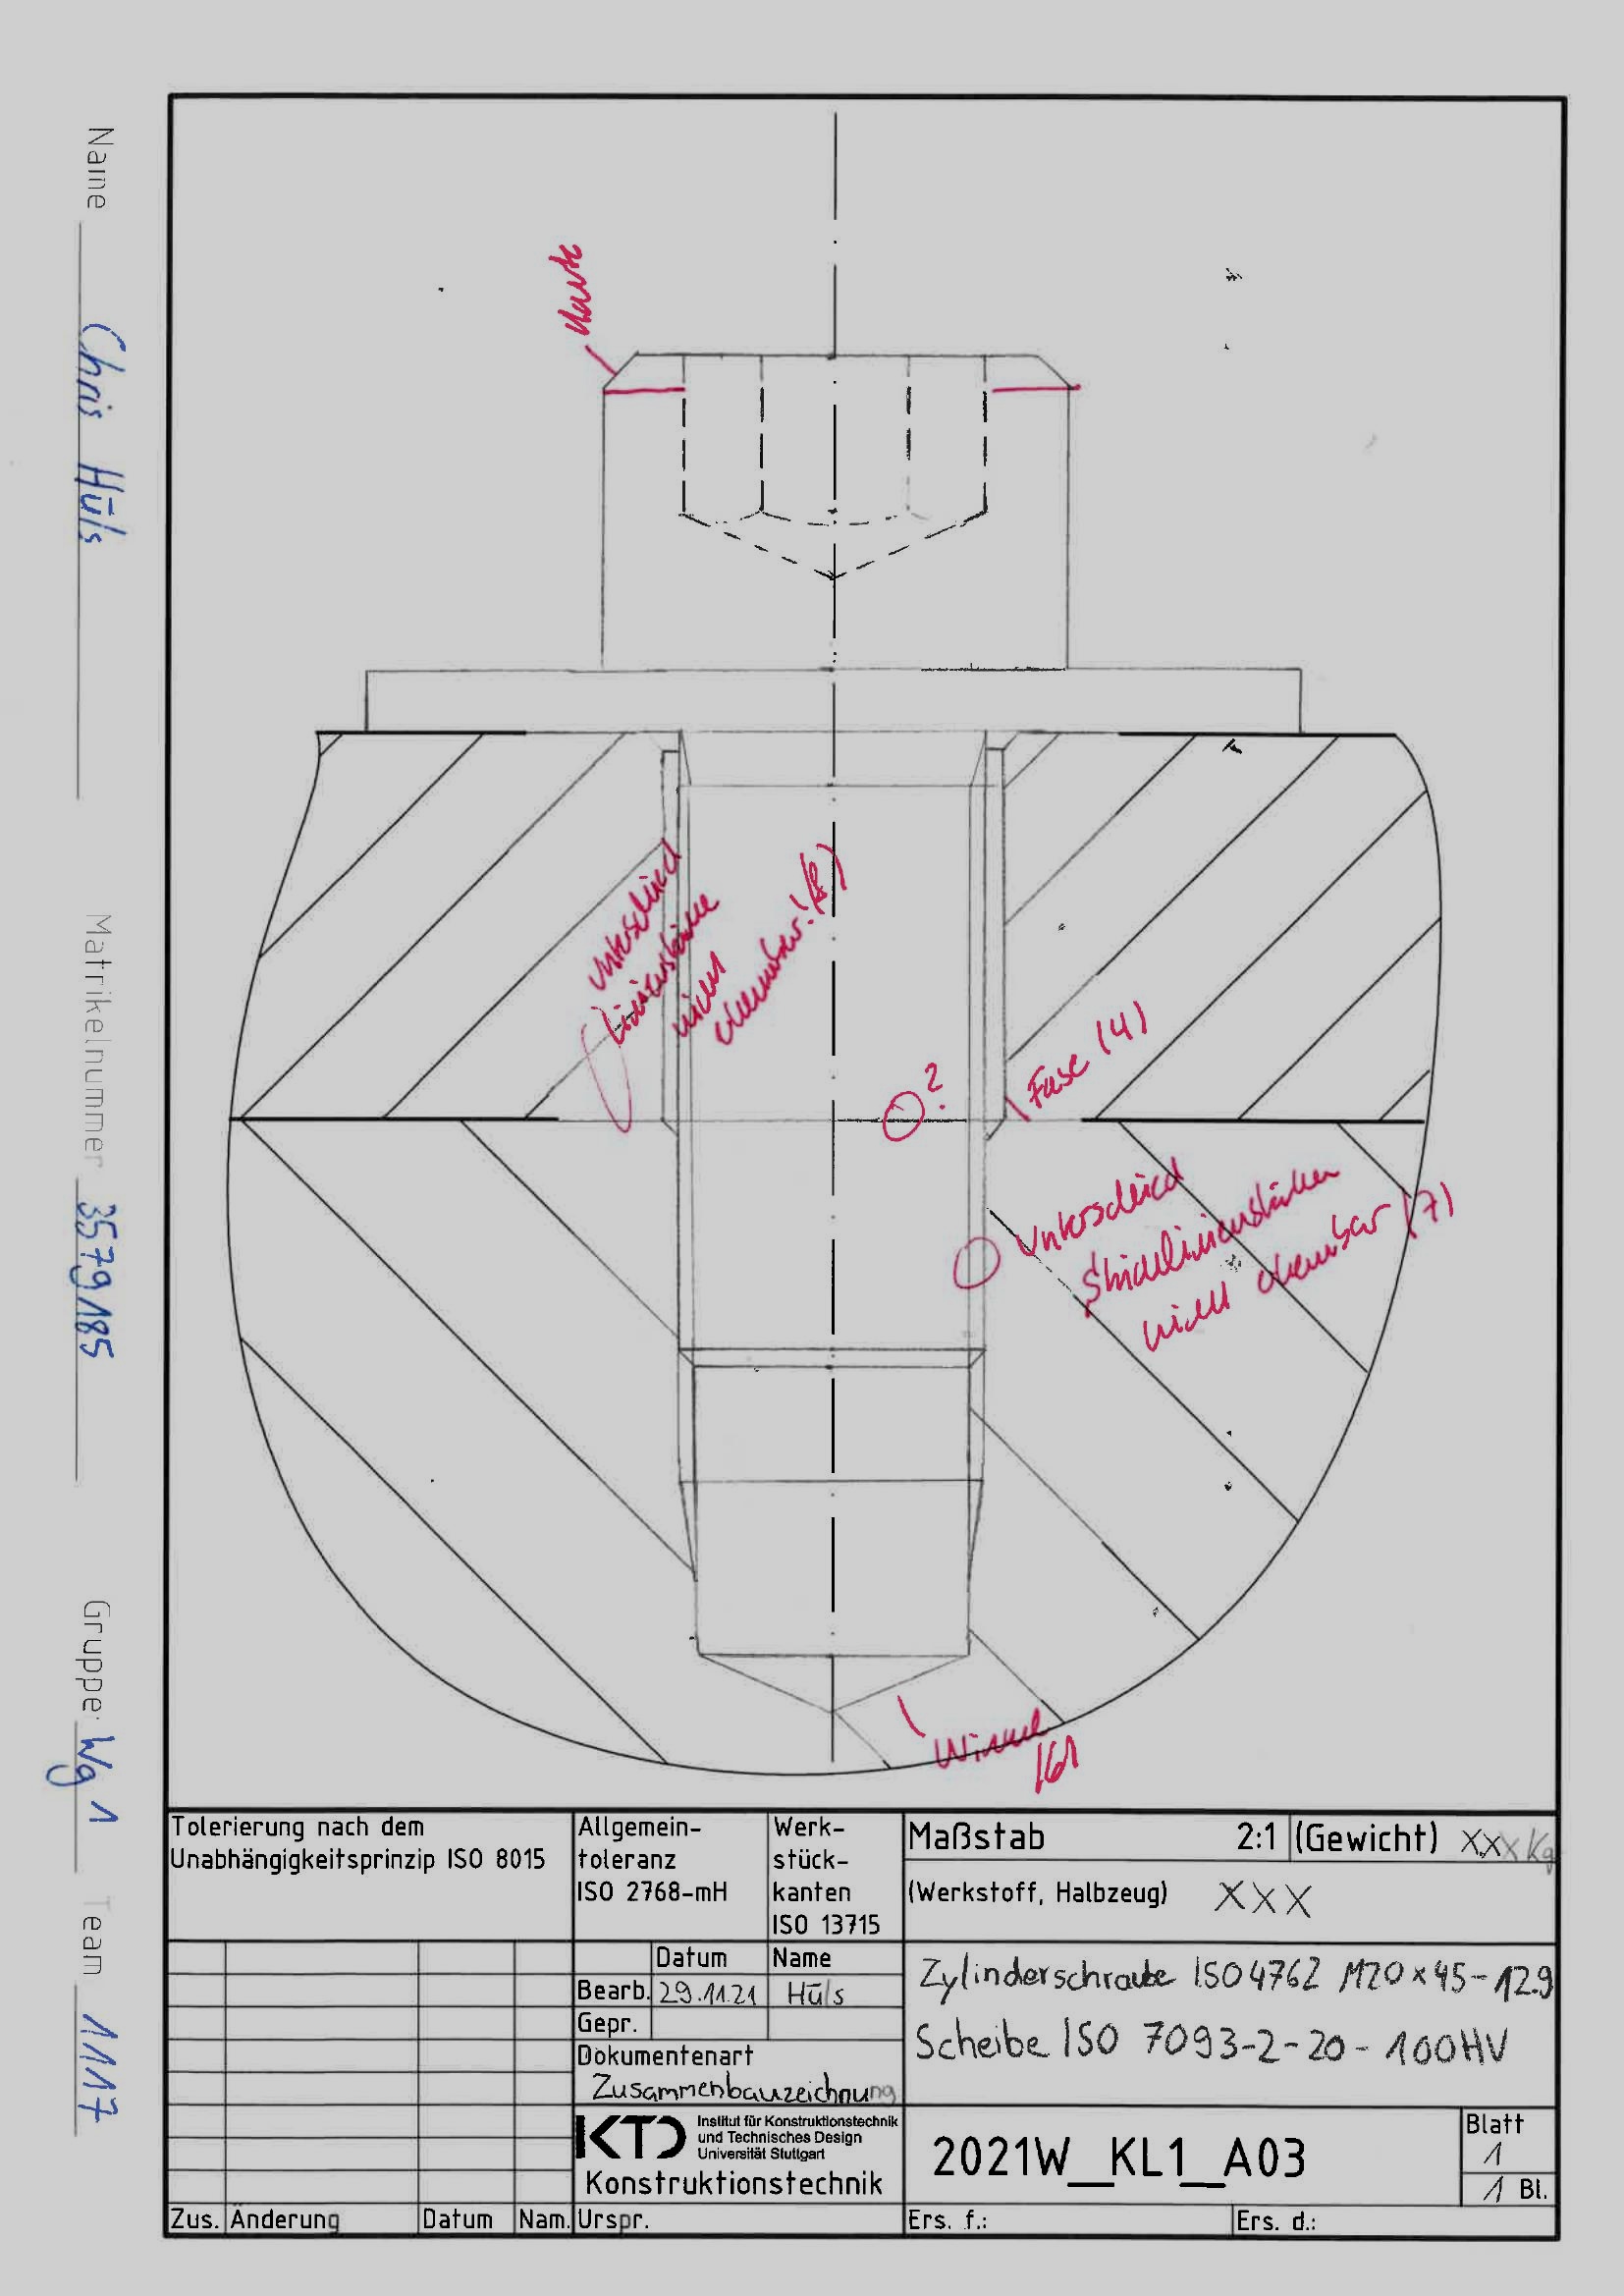 Name Chris Hüls
Matrikelnummer 3579185
Gruppe Wg 1
Team 1117
Kante
Unterschied
Linienstärke
nicht
erkennbar! (8)
?
Fase (4)
Unterschied
Strichlinienstärken
nicht erkennbar (7)
Winkel
(6)
Tolerierung nach dem
Unabhängigkeitsprinzip ISO 8015
Allgemein-
toleranz
ISO 2768-mH
Werk-
stück-
kanten
ISO 13715
Maßstab 2:1 (Gewicht) XXX Kg
(Werkstoff, Halbzeug) XXX
Datum Name
Bearb. 29.11.21 Hüls
Gepr.
Dokumentenart
Zusammenbauzeichnung
Zylinderschraube ISO4762 M20x45-12.9
Scheibe ISO 7093-2-20-100HV
KTD
Institut für Konstruktionstechnik
und Technisches Design
Universität Stuttgart
Konstruktionstechnik
2021W_KL1_A03
Blatt
1
1 Bl.
Zus. Änderung Datum Nam. Urspr. Ers. f.: Ers. d.: